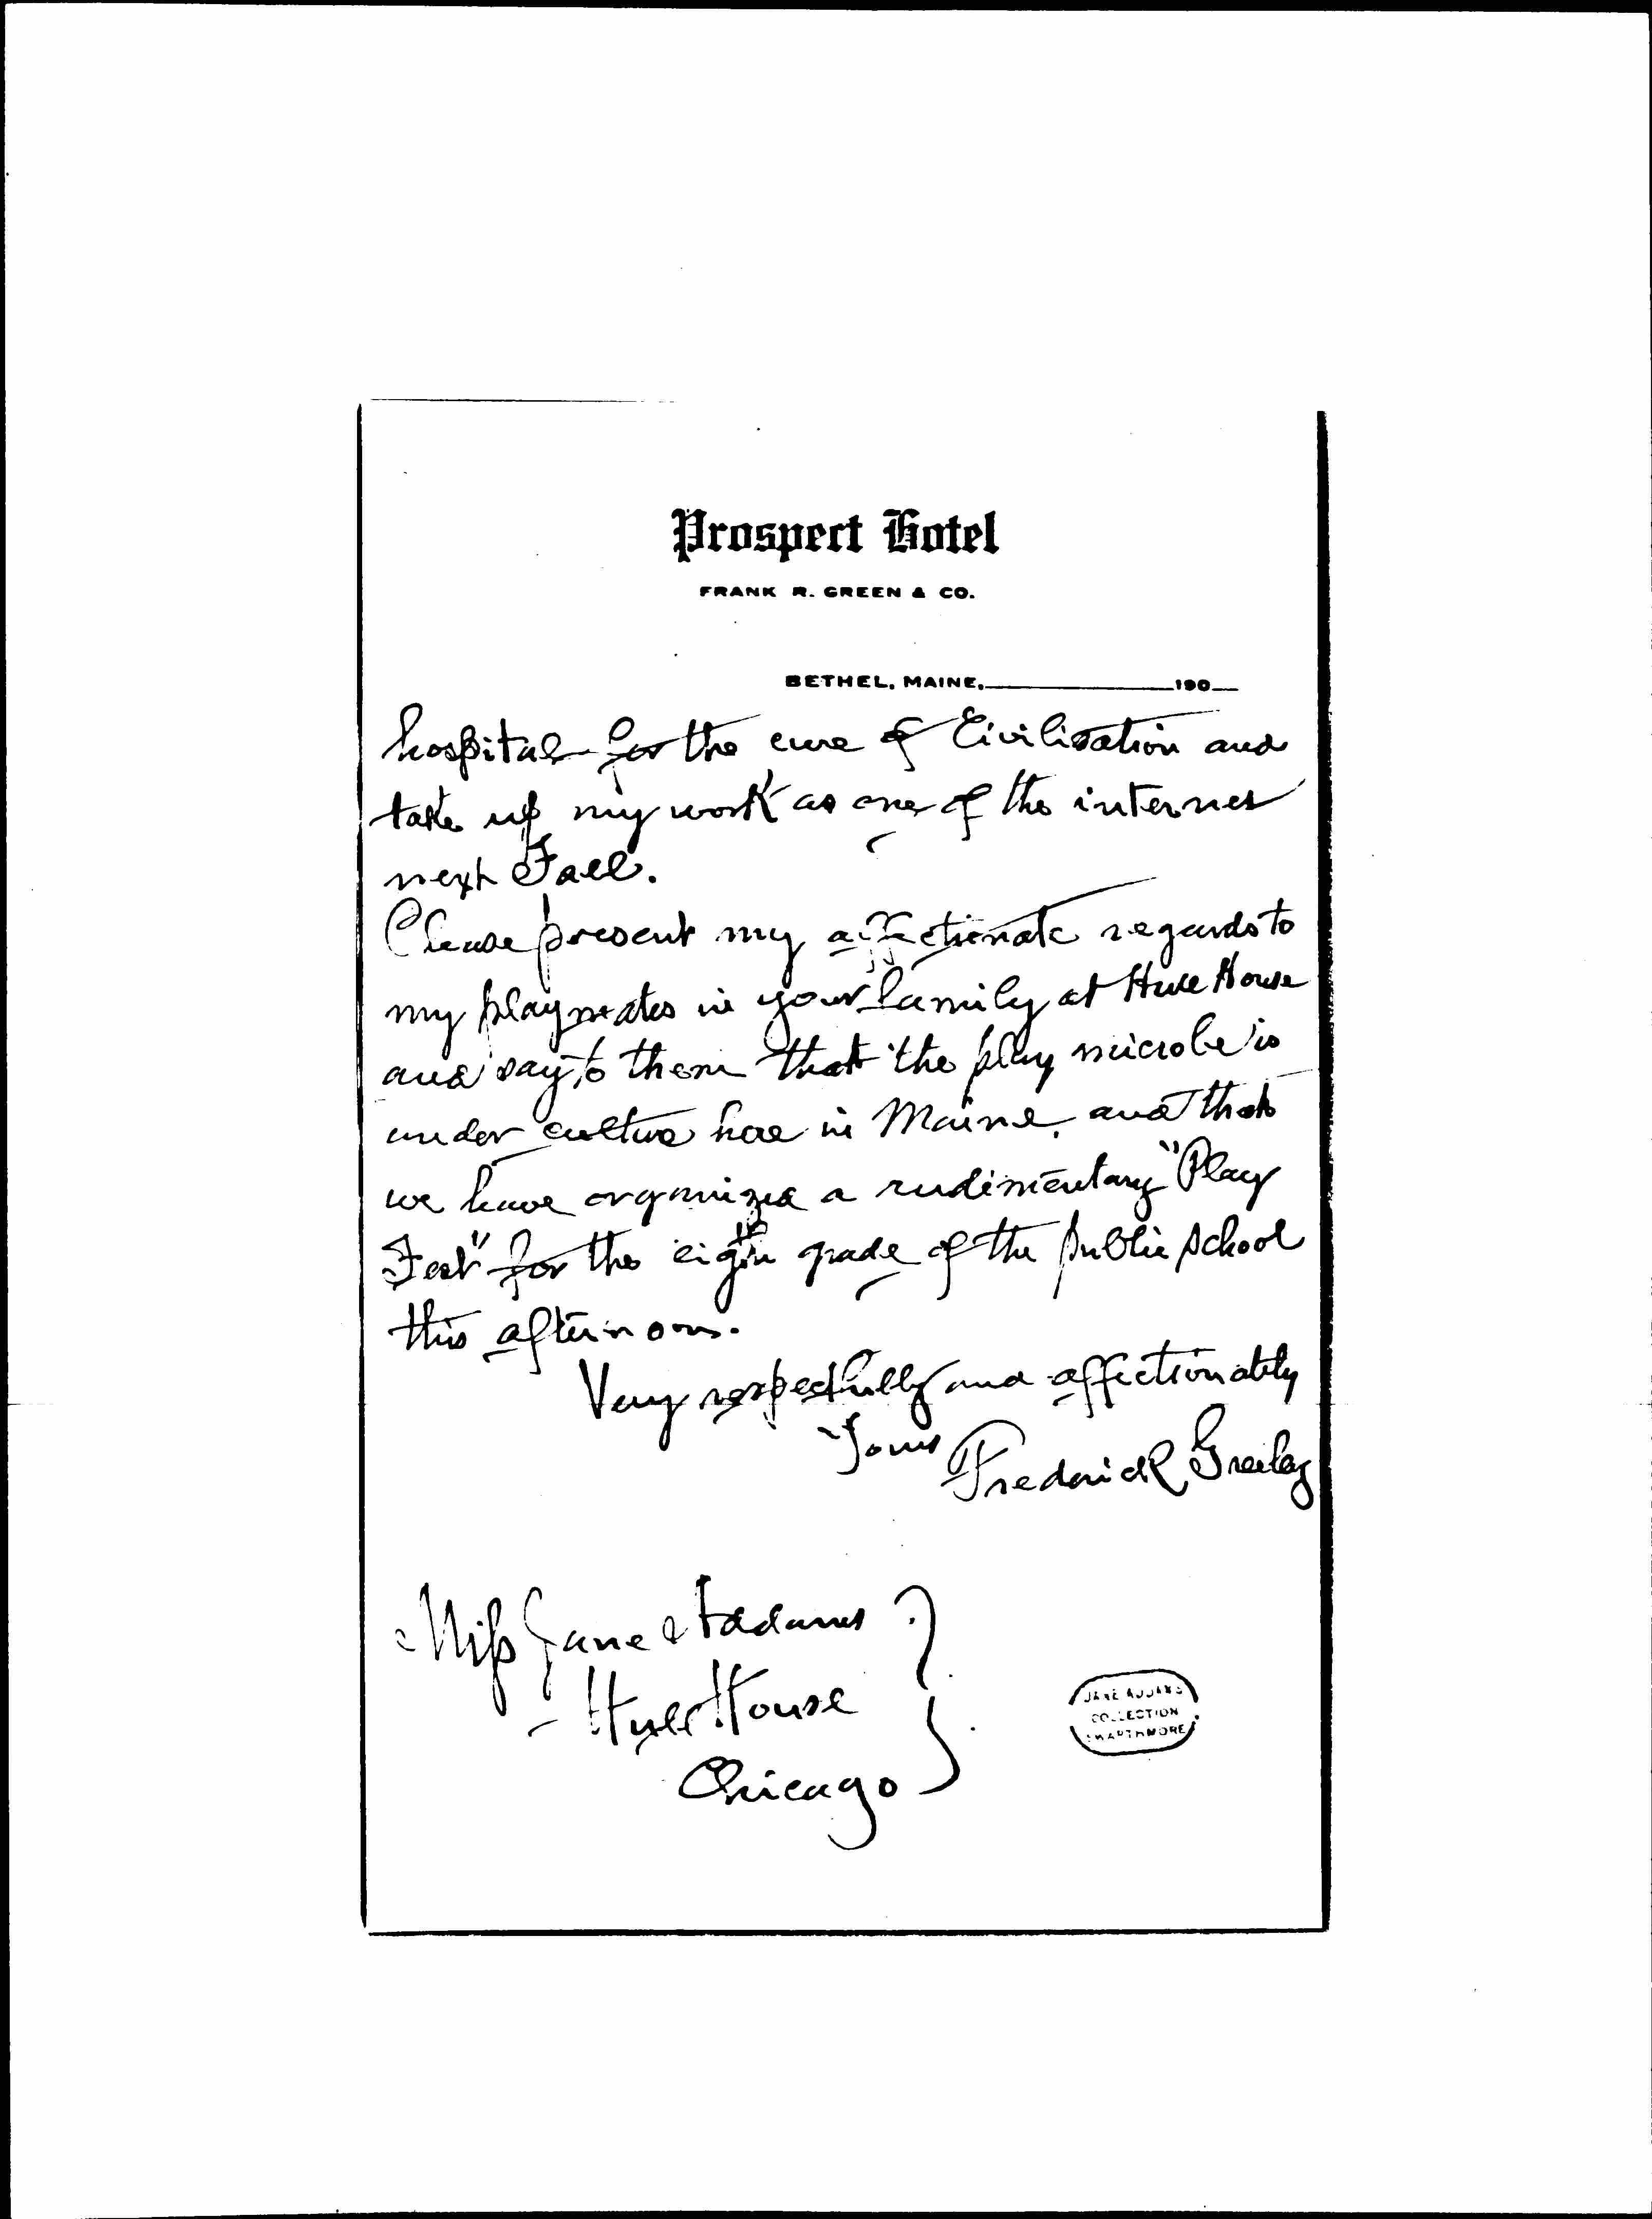 Prospect Hotel
FRANK R. GREEN & CO.
BETHEL, MAINE, 190
hospital for the cure of Civilisation and
take up my work as one of the internes
next Fall.
Please present my affectionate regards to
my playmates in your family at Hull House
and say to them that the play microbe is
under culture here in Maine, and that
we have organized a rudimentary "Play
Fest" for the eigth grade of the public school
this afternoon.
Very respectfully and affectionately
Yours Frederick Greeley
Miss Jane Addams
Hull House
Chicago
JANE ADDAMS
COLLECTION
SWARTHMORE